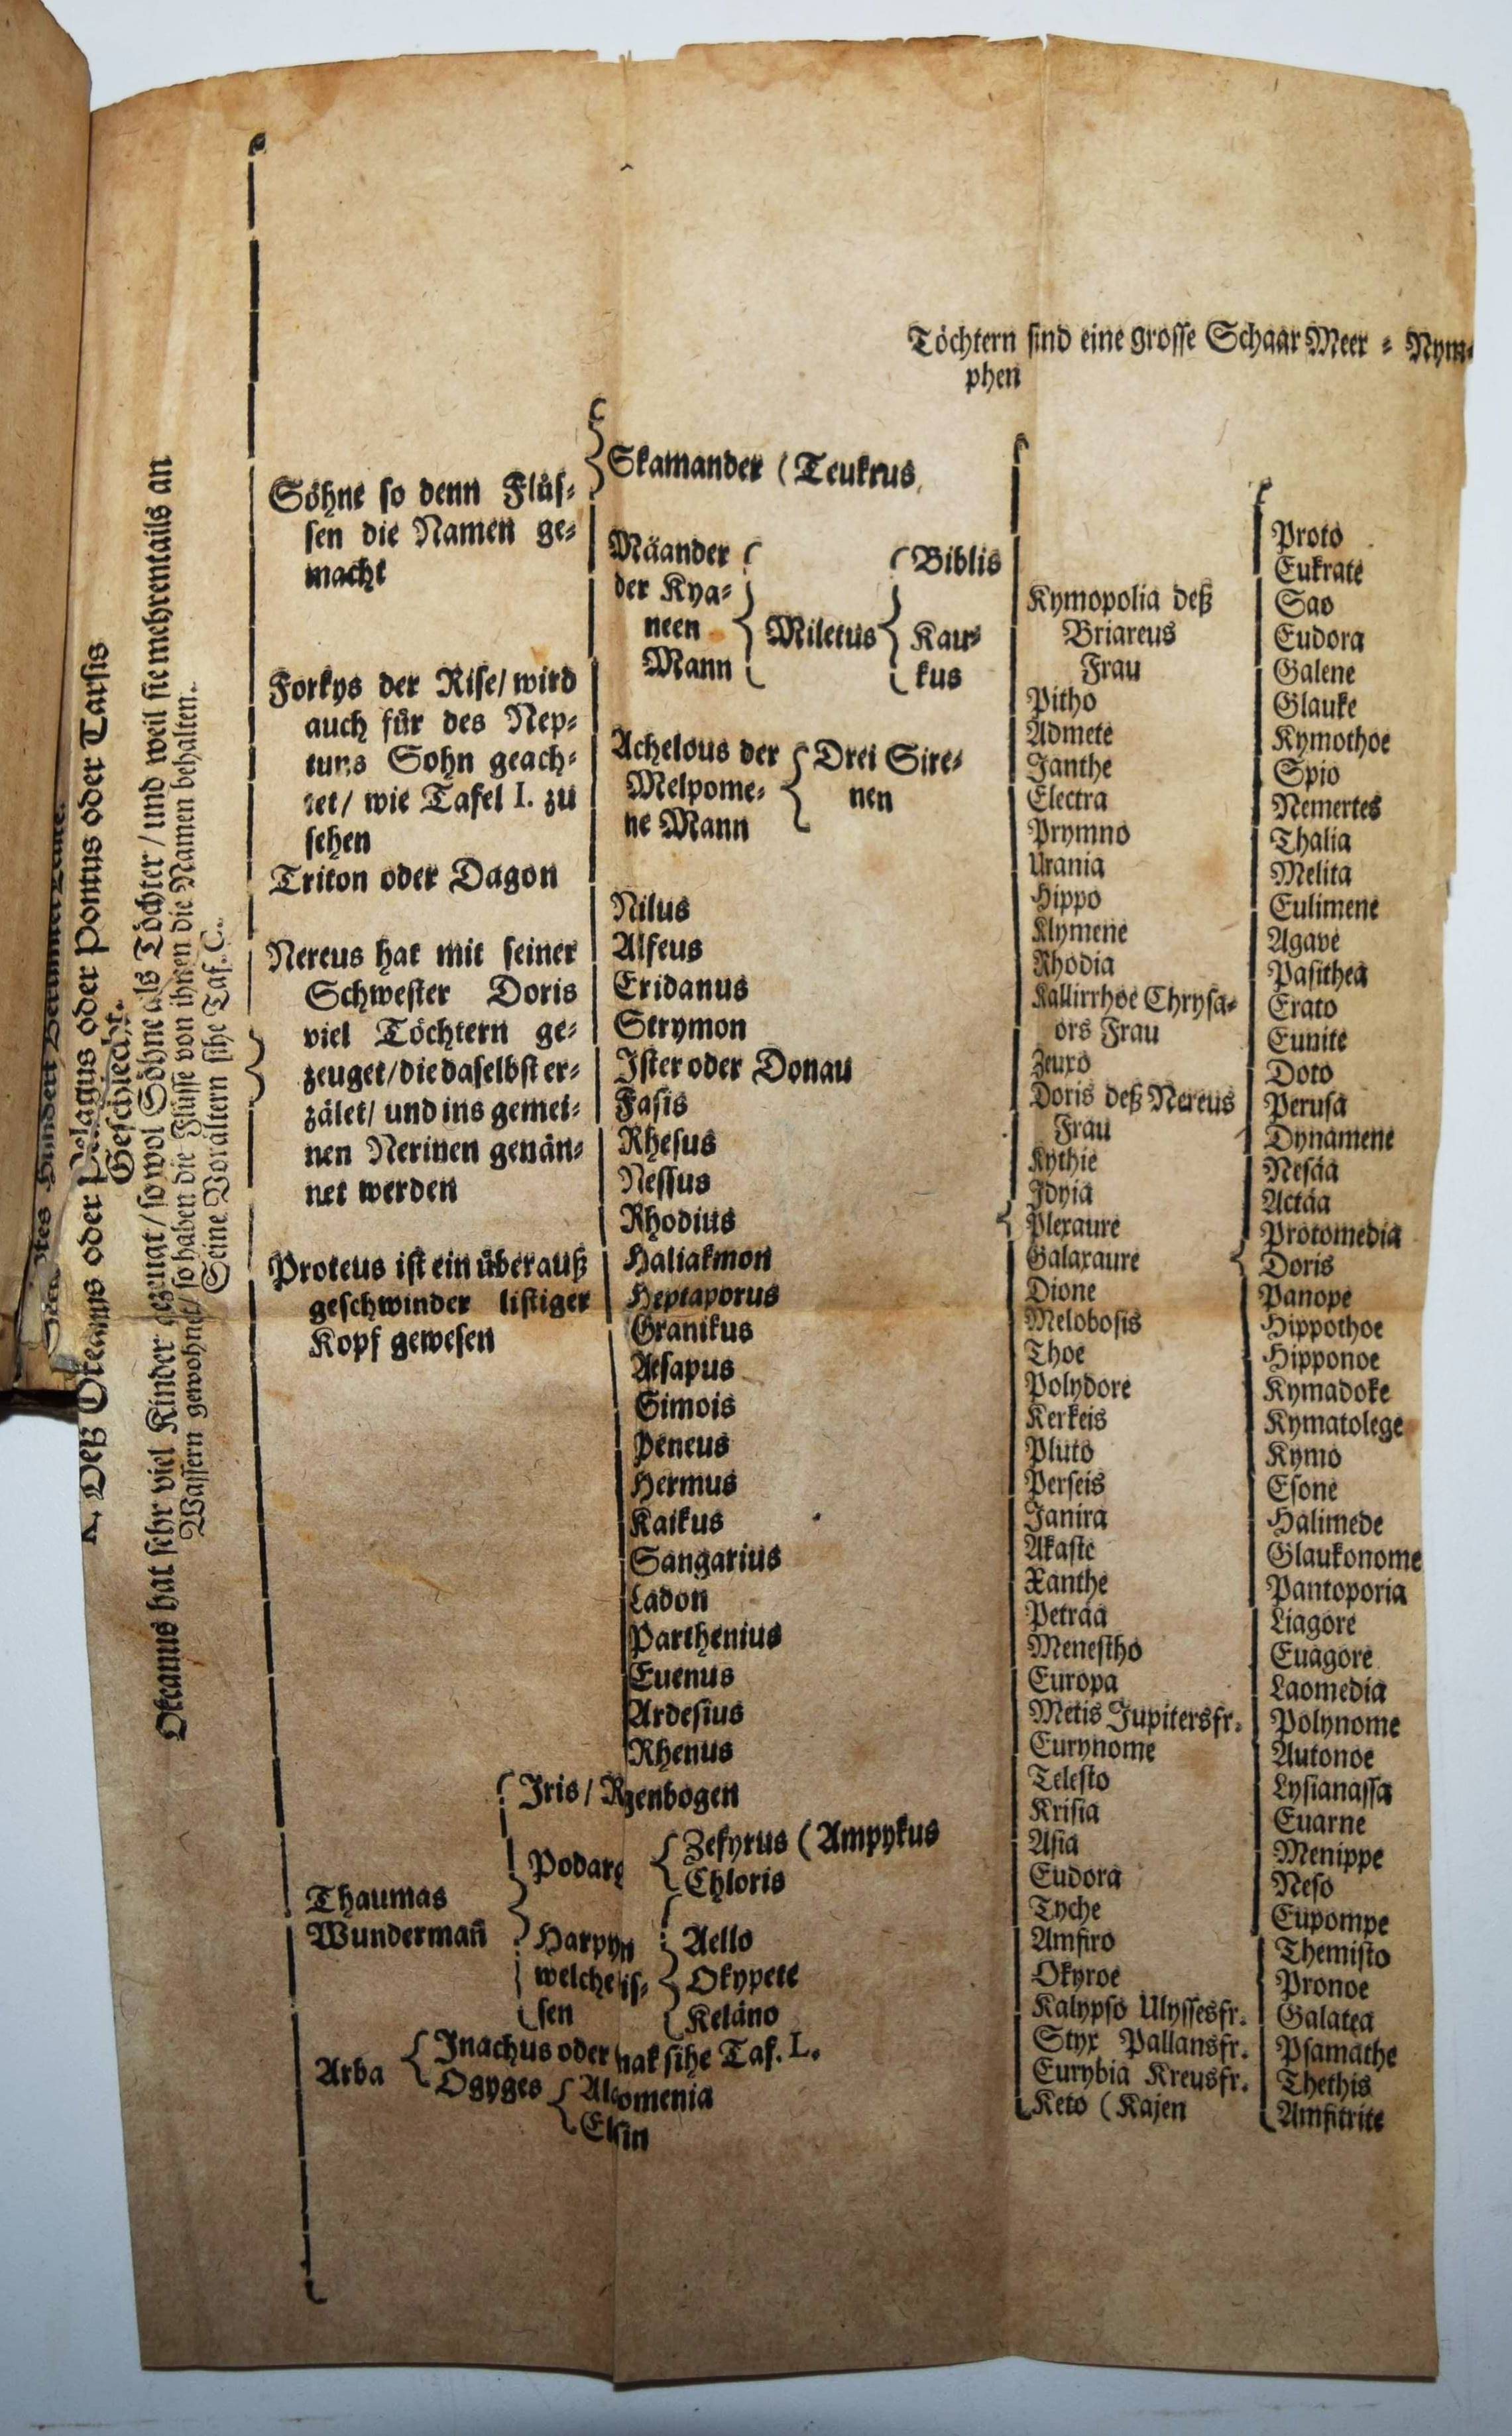 K, Deß Okeanus oder Pelagus oder Pontus oder Tarsis
Geschlecht.
Okeanus hat sehr viel Kinder gezeugt / so wol Söhne als Töchter / und weil sie mehrentails an
Wassern gewohnet / so haben die Flüsse von ihnen die Namen behalten.
Seine Vorältern sihe Taf. C.
Söhne so denn Flüs-
sen die Namen ge-
macht
Forkys der Rise / wird
auch für des Nep-
tuns Sohn geach-
tet / wie Tafel I. zu
sehen
Triton oder Dagon
Nereus hat mit seiner
Schwester Doris
viel Töchtern ge-
zeuget / die daselbst er-
zälet / und ins gemei-
nen Nerinen genän-
net werden
Proteus ist ein überauß
geschwinder listiger
Kopf gewesen
Thaumas
Wundermañ
Iris / Regenbogen
Podarg
Zefyrus ( Ampykus
Chloris
Harpyn
welche is-
sen
Aello
Okypete
Keläno
Arba
Inachus oder nak sihe Taf. L.
Ogyges
Alcomenia
Elsin
Skamander ( Teukrus
Mäander
der Kya-
neen
Mann
Miletus
Biblis
Kau-
kus
Achelous der
Melpome-
ne Mann
Drei Sire-
nen
Nilus
Alfeus
Eridanus
Strymon
Ister oder Donau
Fasis
Rhesus
Nessus
Rhodius
Haliakmon
Heptaporus
Granikus
Aesapus
Simois
Peneus
Hermus
Kaikus
Sangarius
Ladon
Parthenius
Euenus
Ardesius
Rhenus
Töchtern sind eine grosse Schaar Meer - Nym-
phen
Kymopolia deß
Briareus
Frau
Pitho
Admete
Janthe
Electra
Prymno
Urania
Hippo
Klymene
Rhodia
Kallirrhoe Chrysa-
ors Frau
Zeuxo
Doris deß Nereus
Frau
Kythie
Idyia
Plexaure
Galaxaure
Dione
Melobosis
Thoe
Polydore
Kerkeis
Pluto
Perseis
Janira
Akaste
Xanthe
Peträa
Menestho
Europa
Metis Jupitersfr.
Eurynome
Telesto
Krisia
Asia
Eudora
Tyche
Amfiro
Okyroe
Kalypso Ulyssesfr.
Styx Pallansfr.
Eurybia Kreusfr.
Keto ( Kajen
Proto
Eukrate
Sao
Eudora
Galene
Glauke
Kymothoe
Spio
Nemertes
Thalia
Melita
Eulimene
Agave
Pasithea
Erato
Eunite
Doto
Perusa
Dynamene
Nesäa
Actäa
Protomedia
Doris
Panope
Hippothoe
Hipponoe
Kymadoke
Kymatolege
Kymo
Esone
Halimede
Glaukonome
Pantoporia
Liagore
Euagore
Laomedia
Polynome
Autonoe
Lysianassa
Euarne
Menippe
Neso
Eupompe
Themisto
Pronoe
Galatea
Psamathe
Thethis
Amfitrite